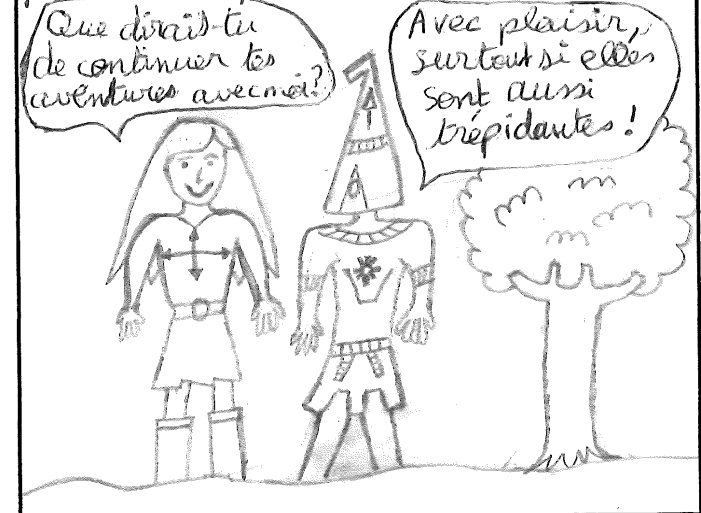 Que dirais-tu
de continuer tes
aventures avec moi?
Avec plaisir,
surtout si elles
sont aussi
trépidantes !